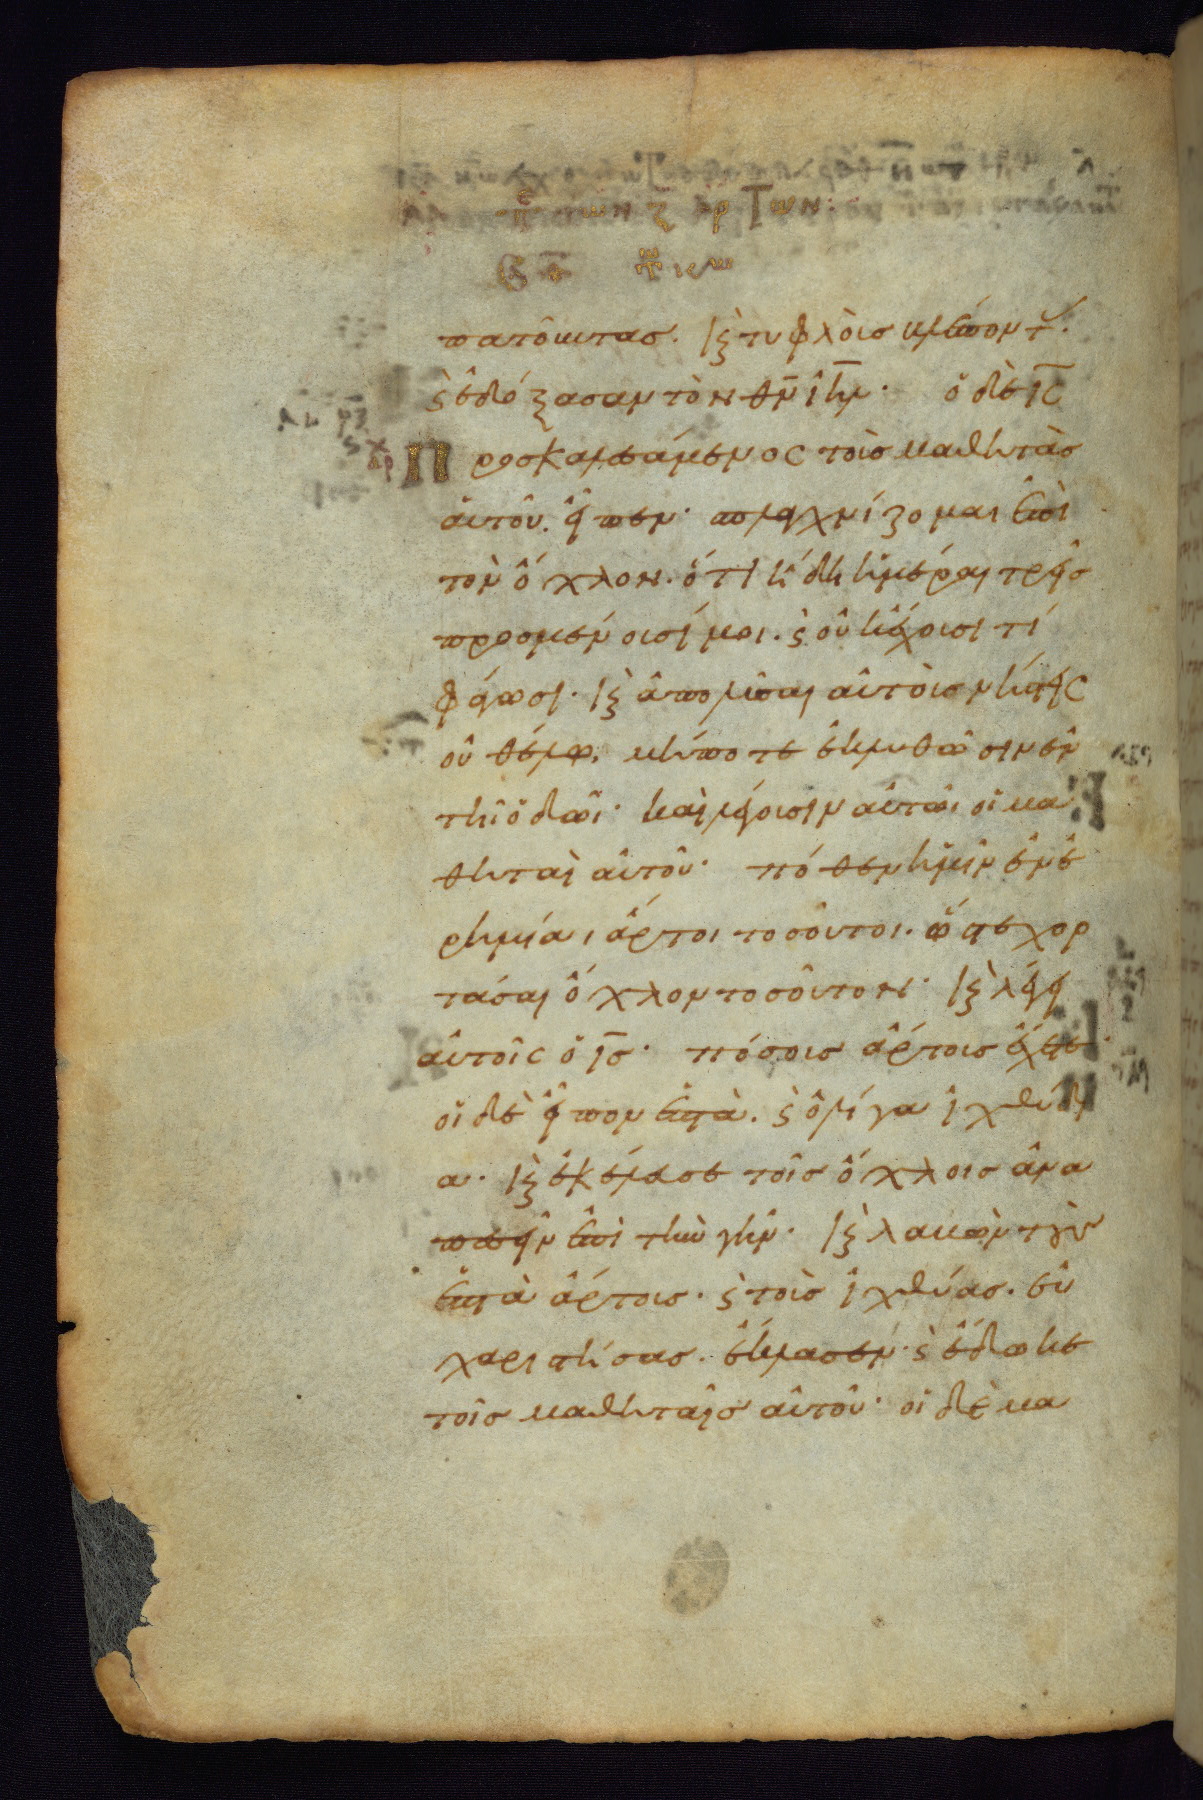 τῶν ζ ἄρτων:
πατοῦντας. κ(αὶ) τυφλοὺς βλέποντ(ας).
κ(αὶ) ἐδόξασαν τὸν θν̅ ιη̅λ· ὁ δὲ ις̅
Προσκαλεσάμενος τοὺς μαθητὰς
αὐτοῦ. εἶπεν· σπλαγχνίζομαι ἐπὶ
τὸν ὄχλον. ὅτι ἤδη ἡμέραι τρεῖς
προσμένουσί μοι. κ(αὶ) οὐκ ἔχουσι τί
φάγωσι· κ(αὶ) ἀπολῦσαι αὐτοὺς νήστεις
οὐ θέλω. μήποτε ἐκλυθῶσιν ἐν
τῆι ὁδῶι· καὶ λέγουσιν αὐτῶι οἱ μα
θηταὶ αὐτοῦ· πόθεν ἡμῖν ἐν ἐ
ρημίαι ἄρτοι τοσοῦτοι. ὥστε χορ
τάσαι ὄχλον τοσοῦτον· κ(αὶ) λέγει
αὐτοῖς ὁ ις̅· πόσους ἄρτους ἔχετε·
οἱ δὲ εἶπον ἑπτὰ. κ(αὶ) ὀλίγα ἰχθύδι
α· κ(αὶ) ἐκέλευσε τοῖς ὄχλοις ἀνα
πεσεῖν ἐπὶ τὴν γῆν· κ(αὶ) λαβὼν τοὺς
ἑπτὰ ἄρτους· κ(αὶ) τοὺς ἰχθύας. εὐ
χαριστήσας. ἔκλασεν· κ(αὶ) ἔδωκε
τοῖς μαθηταῖς αὐτοῦ· οἱ δὲ μα